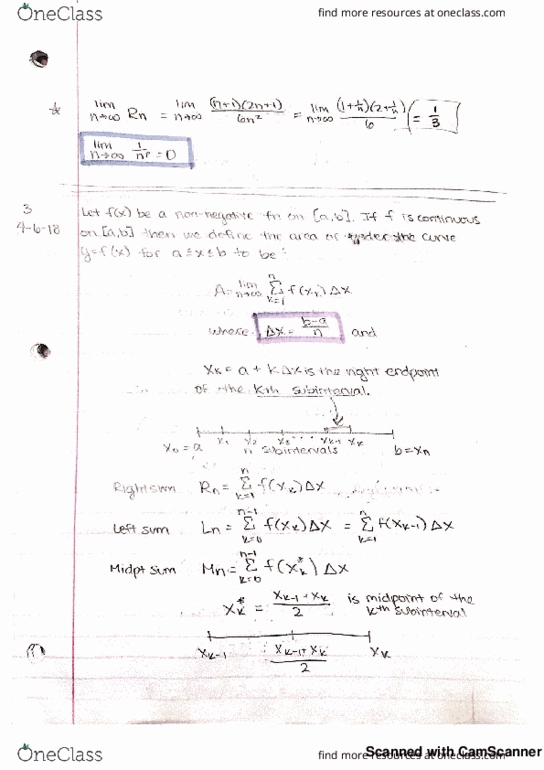 OneClass
find more resources at oneclass.com
lim n→∞ Rn = lim n→∞ (n+1)(2n+1)/6n² = lim n→∞ (1+1/n)(2+1/n)/6 = 1/3
lim n→∞ 1/nᵖ = 0
3
4-6-18
Let f(x) be a non-negative fn on [a,b]. If f is continuous
on [a,b] then we define the area of under the curve
y=f(x) for a≤x≤b to be:
A = lim n→∞ Σ k=1 n f(xₖ) Δx
where Δx = b-a/n and
xₖ = a + kΔx is the right endpoint
of the kth subinterval.
x₀ = a x₁ x₂ x₃ ... xₖ₋₁ xₖ b = xn
n subintervals
Right sum Rn = Σ k=1 n f(xₖ) Δx
Left sum Ln = Σ k=0 n-1 f(xₖ) Δx = Σ k=1 n f(xₖ₋₁) Δx
Midpt sum Mn = Σ k=0 n-1 f(xₖ*) Δx
xₖ* = xₖ₋₁ + xₖ/2 is midpoint of the
kth subinterval
xₖ₋₁ xₖ₋₁ + xₖ/2 xₖ
OneClass
find more resources at oneclass.com
Scanned with CamScanner